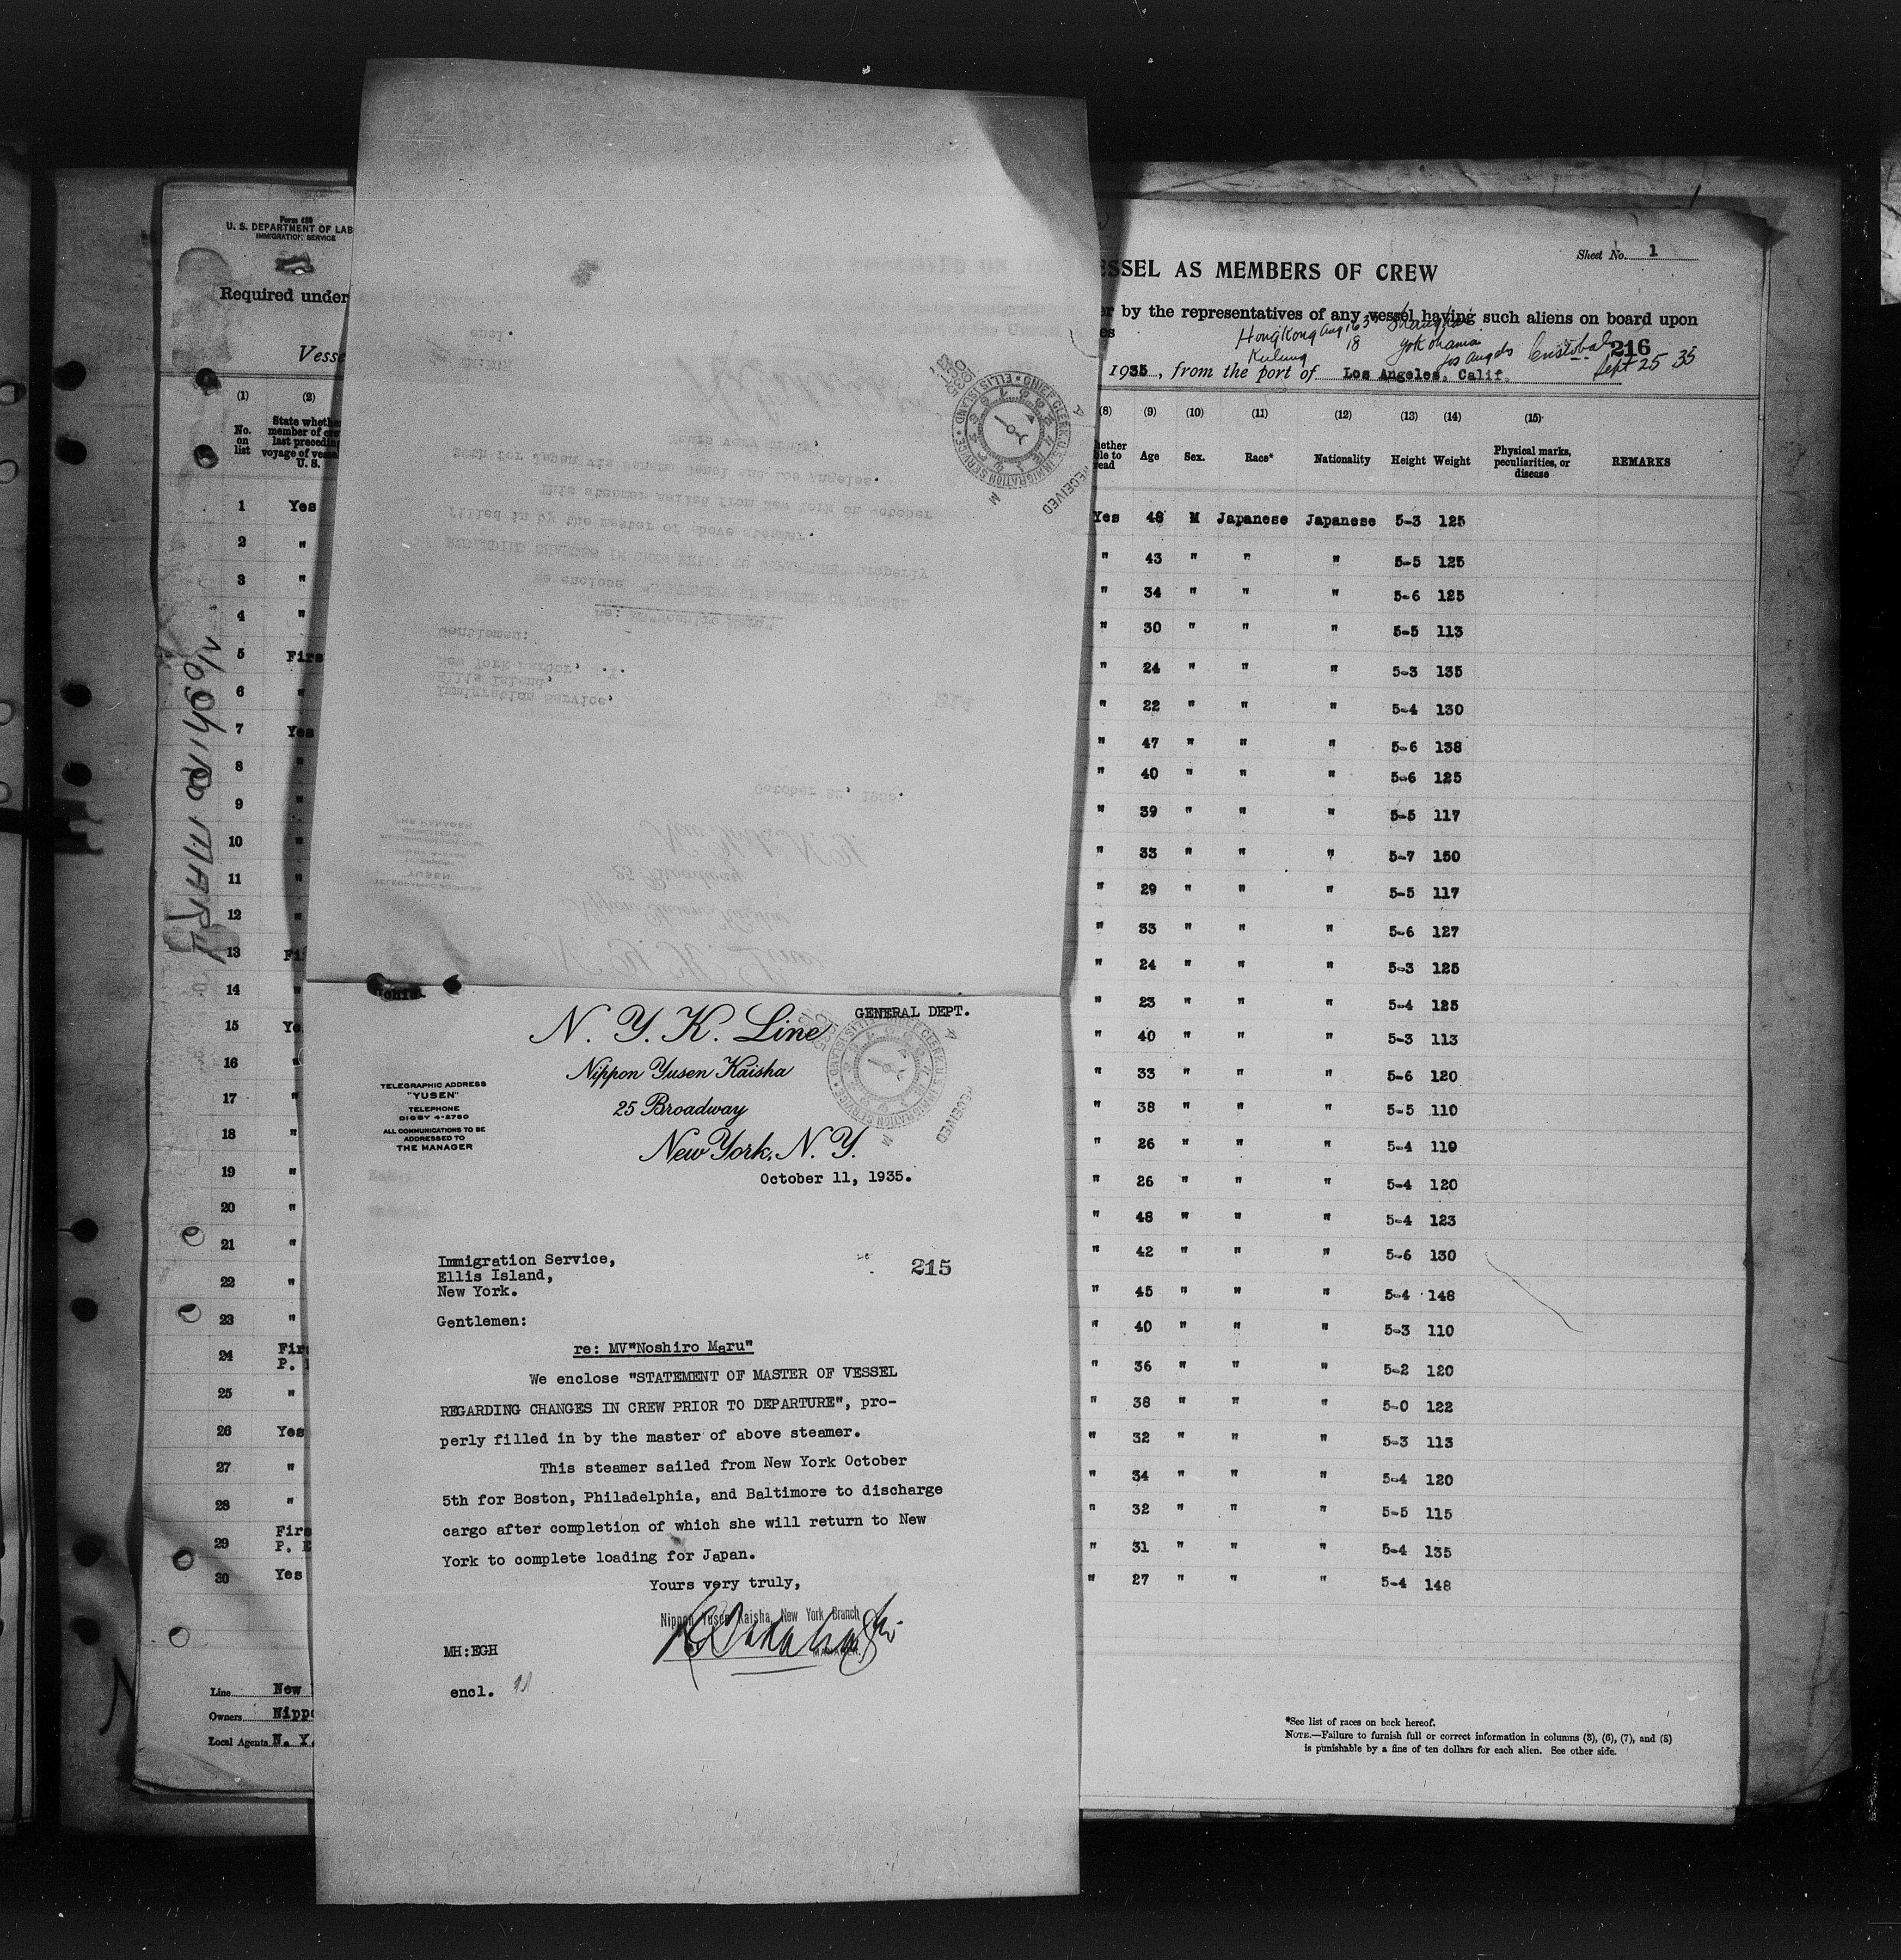 Form 689
U. S. DEPARTMENT OF LAB
IMMIGRATION SERVICE
Required under
Vesse
(1) (2)
No. on list
State whethe
member of cre
last precedin
voyage of vesse
U. S.
1 Yes
2 "
3 "
4 "
5 Firs
6 "
7 Yes
8 "
9 "
10 "
11 "
12 "
13 Fi
14 "
15 Ye
16 "
17 "
18 "
19 "
20 "
21 "
22 "
23 "
24 Firs
P.
25 "
26 Yes
27 "
28 "
29 Firs
P. E
30 Yes
Line New
Owners Nippo
Local Agents N. Y.
Noshiro MARU
GENERAL DEPT.
N. Y. K. Line
Nippon Yusen Kaisha
25 Broadway
New York, N. Y.
TELEGRAPHIC ADDRESS
"YUSEN"
TELEPHONE
DIGBY 4-2780
ALL COMMUNICATIONS TO BE
ADDRESSED TO
THE MANAGER
October 11, 1935.
Immigration Service,
Ellis Island,
New York.
215
Gentlemen:
re: MV"Noshiro Maru"
We enclose "STATEMENT OF MASTER OF VESSEL
REGARDING CHANGES IN CREW PRIOR TO DEPARTURE", pro-
perly filled in by the master of above steamer.
This steamer sailed from New York October
5th for Boston, Philadelphia, and Baltimore to discharge
cargo after completion of which she will return to New
York to complete loading for Japan.
Yours very truly,
Nippon Yusen Kaisha, New York Branch
MANAGER.
MH:EGH
encl.
RECEIVED
CHIEF CLERK, U.S. IMMIGRATION SERVICE ELLIS ISLAND
Sheet No. 1
ESSEL AS MEMBERS OF CREW
er by the representatives of any vessel having such aliens on board upon
es
HongKong Aug 16 Shanghai
Keelung 18 Yokohama
Los Angeles Cristobal
216
Sept 25 35
1935, from the port of Los Angeles, Calif.
(8) (9) (10) (11) (12) (13) (14) (15)
hether
ble to
read
Age Sex. Race* Nationality Height Weight
Physical marks,
peculiarities, or
disease
REMARKS
Yes 48 M Japanese Japanese 5-3 125
" 43 " " " 5-5 125
" 34 " " " 5-6 125
" 30 " " " 5-5 113
" 24 " " " 5-3 135
" 22 " " " 5-4 130
" 47 " " " 5-6 138
" 40 " " " 5-6 125
" 39 " " " 5-5 117
" 33 " " " 5-7 150
" 29 " " " 5-5 117
" 33 " " " 5-6 127
" 24 " " " 5-3 125
" 23 " " " 5-4 125
" 40 " " " 5-3 113
" 33 " " " 5-6 120
" 38 " " " 5-5 110
" 26 " " " 5-4 110
" 26 " " " 5-4 120
" 48 " " " 5-4 123
" 42 " " " 5-6 130
" 45 " " " 5-4 148
" 40 " " " 5-3 110
" 36 " " " 5-2 120
" 38 " " " 5-0 122
" 32 " " " 5-3 113
" 34 " " " 5-4 120
" 32 " " " 5-5 115
" 31 " " " 5-4 135
" 27 " " " 5-4 148
*See list of races on back hereof.
NOTE.—Failure to furnish full or correct information in columns (3), (6), (7), and (8)
is punishable by a fine of ten dollars for each alien. See other side.